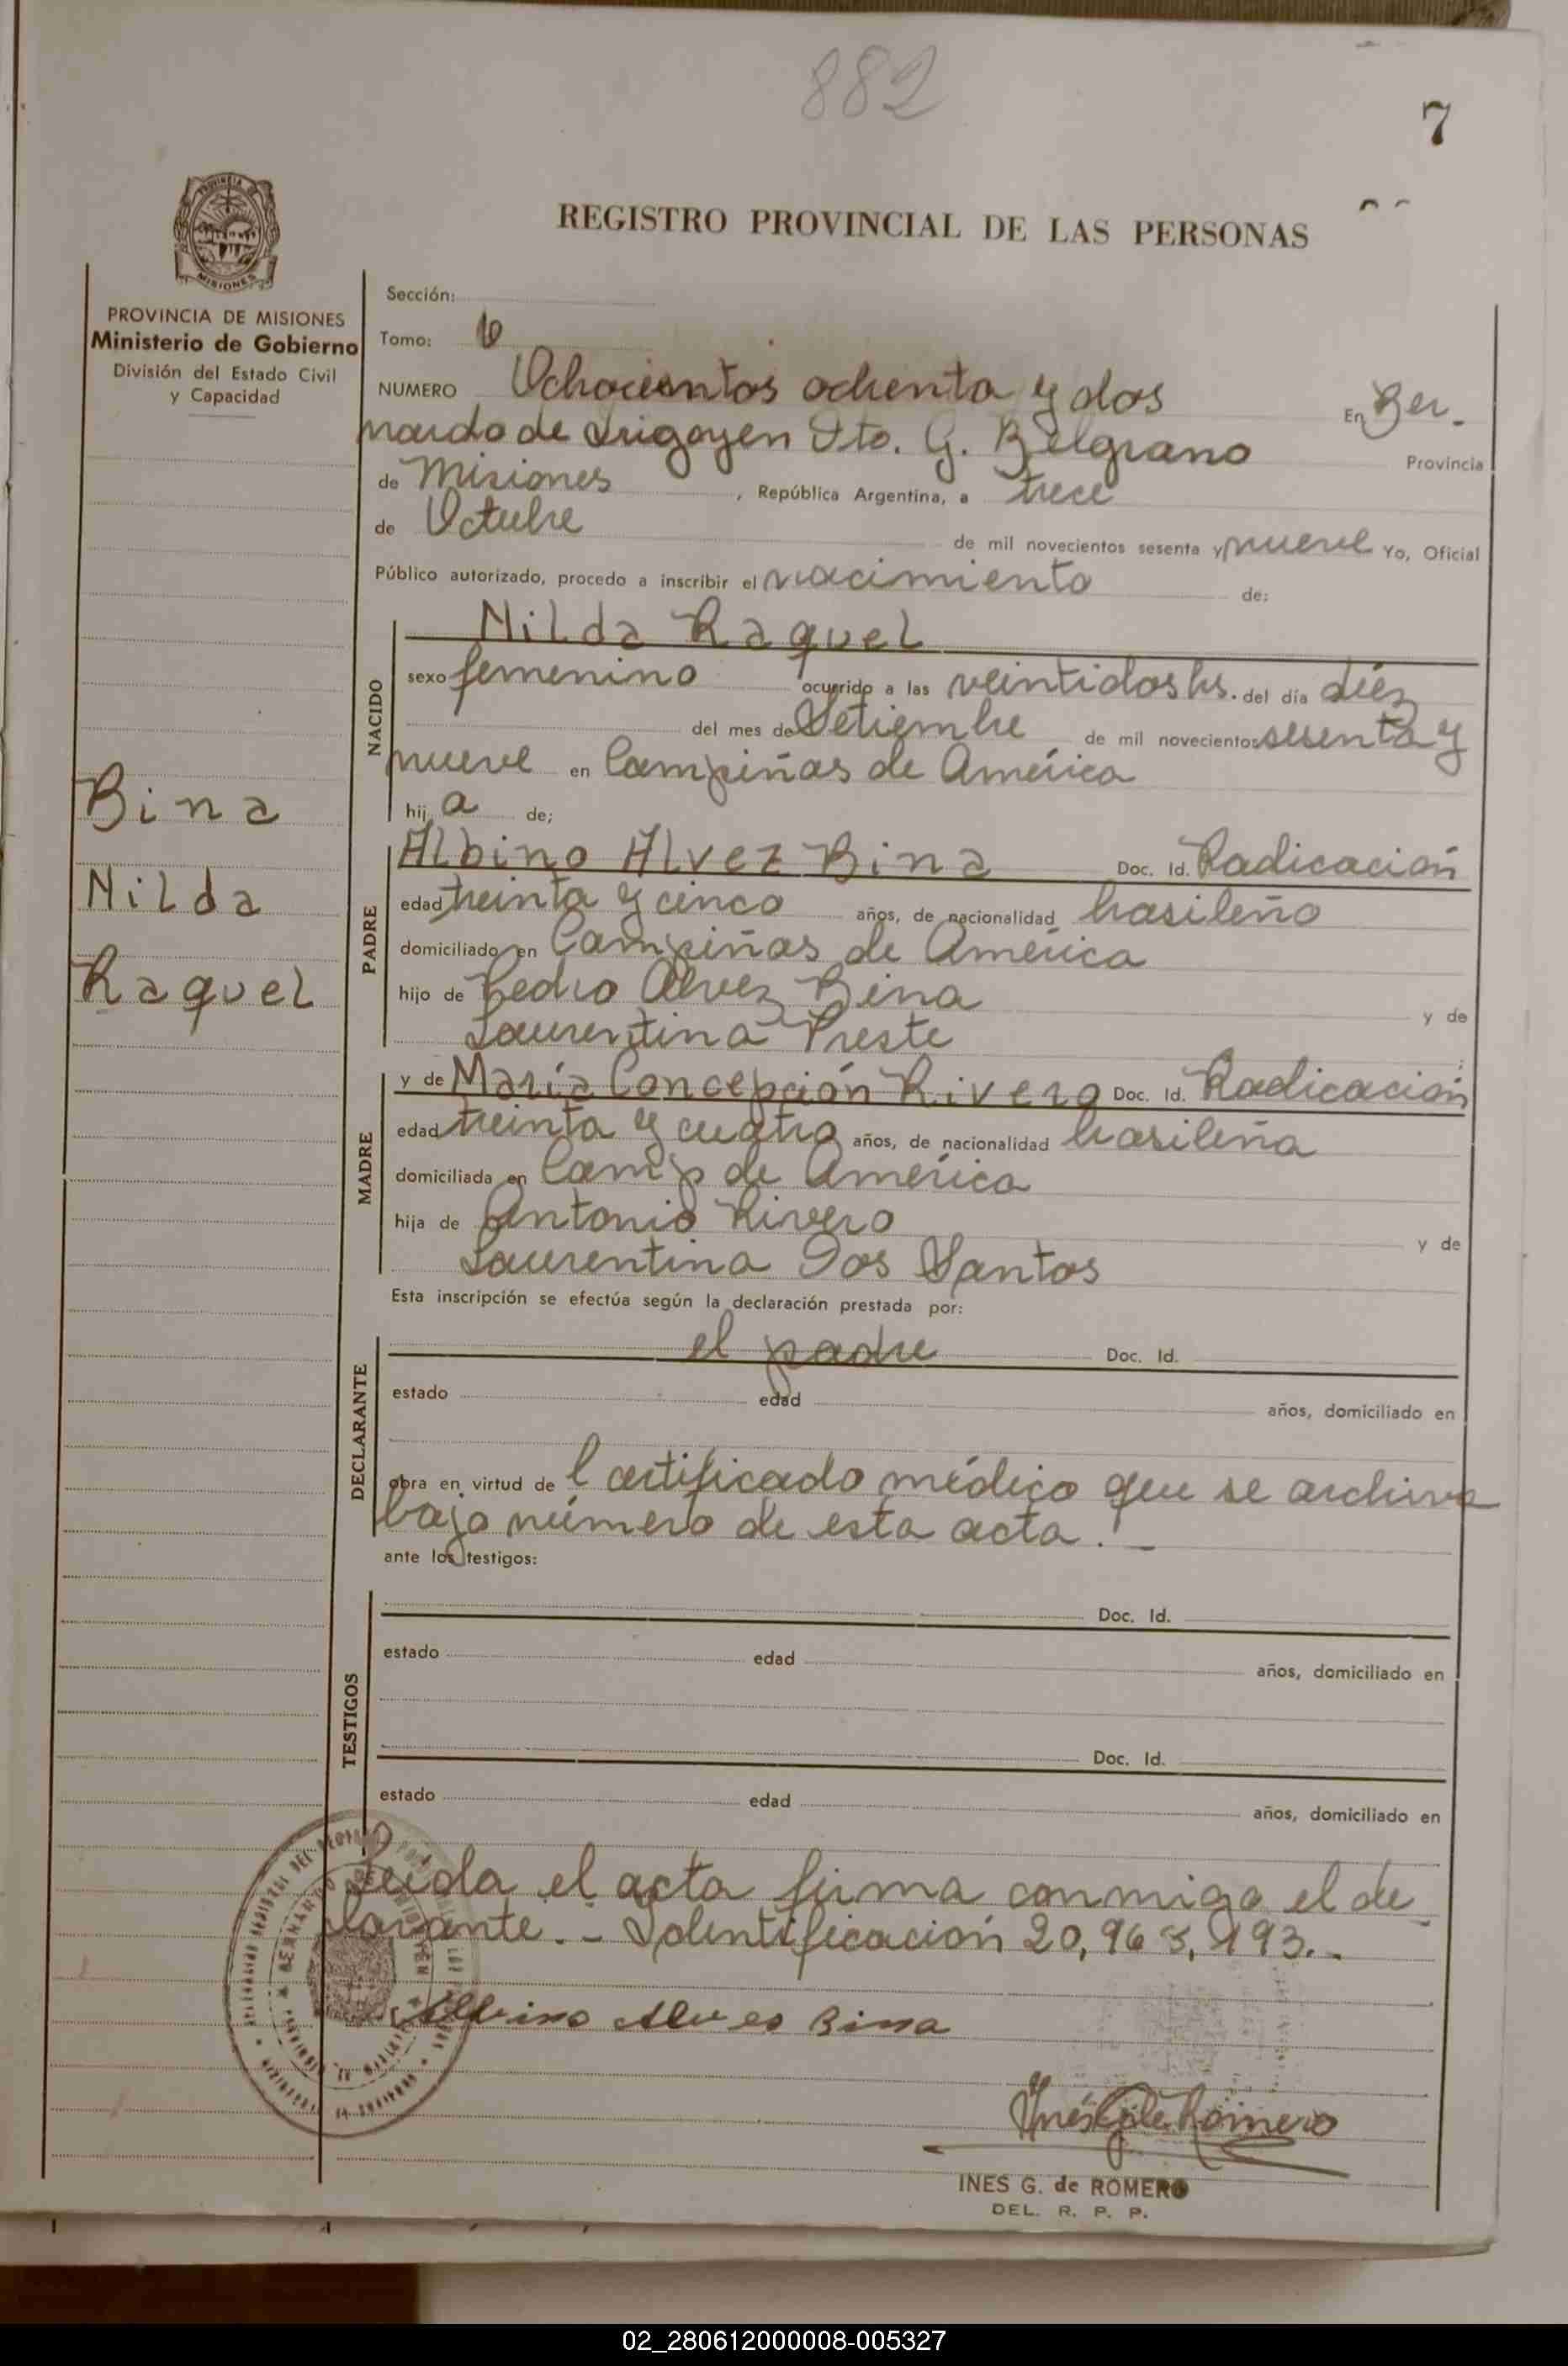 882
7
REGISTRO PROVINCIAL DE LAS PERSONAS
PROVINCIA DE MISIONES
Ministerio de Gobierno
División del Estado Civil
y Capacidad
Bina
Nilda
Raquel
Sección:
Tomo:
NUMERO Ochocientos ochenta y dos En Ber-
nardo de Irigoyen Dto. G. Belgrano Provincia
de Misiones, República Argentina, a trece
de Octubre de mil novecientos sesenta y nueve Yo, Oficial
Público autorizado, procedo a inscribir el nacimiento de:
NACIDO
Nilda Raquel
sexo femenino ocurrido a las veintidos hs. del día diéz
del mes de Setiembre de mil novecientos sesenta y
nueve en Campiñas de América
hij a de;
PADRE
Albino Alvez Bina Doc. Id. Radicación
edad treinta y cinco años, de nacionalidad brasileño
domiciliado en Campiñas de América
hijo de Pedro Alvez Bina y de
Laurentina Preste
MADRE
y de María Concepción Rivero Doc. Id. Radicación
edad treinta y cuatro años, de nacionalidad brasileña
domiciliada en Camp de América
hija de Antonio Rivero y de
Laurentina Dos Santos
Esta inscripción se efectúa según la declaración prestada por:
DECLARANTE
el padre Doc. Id.
estado edad años, domiciliado en
obra en virtud de Certificado médico que se archiva
bajo número de esta acta.-
ante los testigos:
TESTIGOS
Doc. Id.
estado edad años, domiciliado en
Doc. Id.
estado edad años, domiciliado en
Leida el acta firma conmigo el de
clarante.- Identificación
Albino Alves Bina
Inés G. de Romero
INES G. de ROMERO
DEL. R. P. P.
02_280612000008-005327